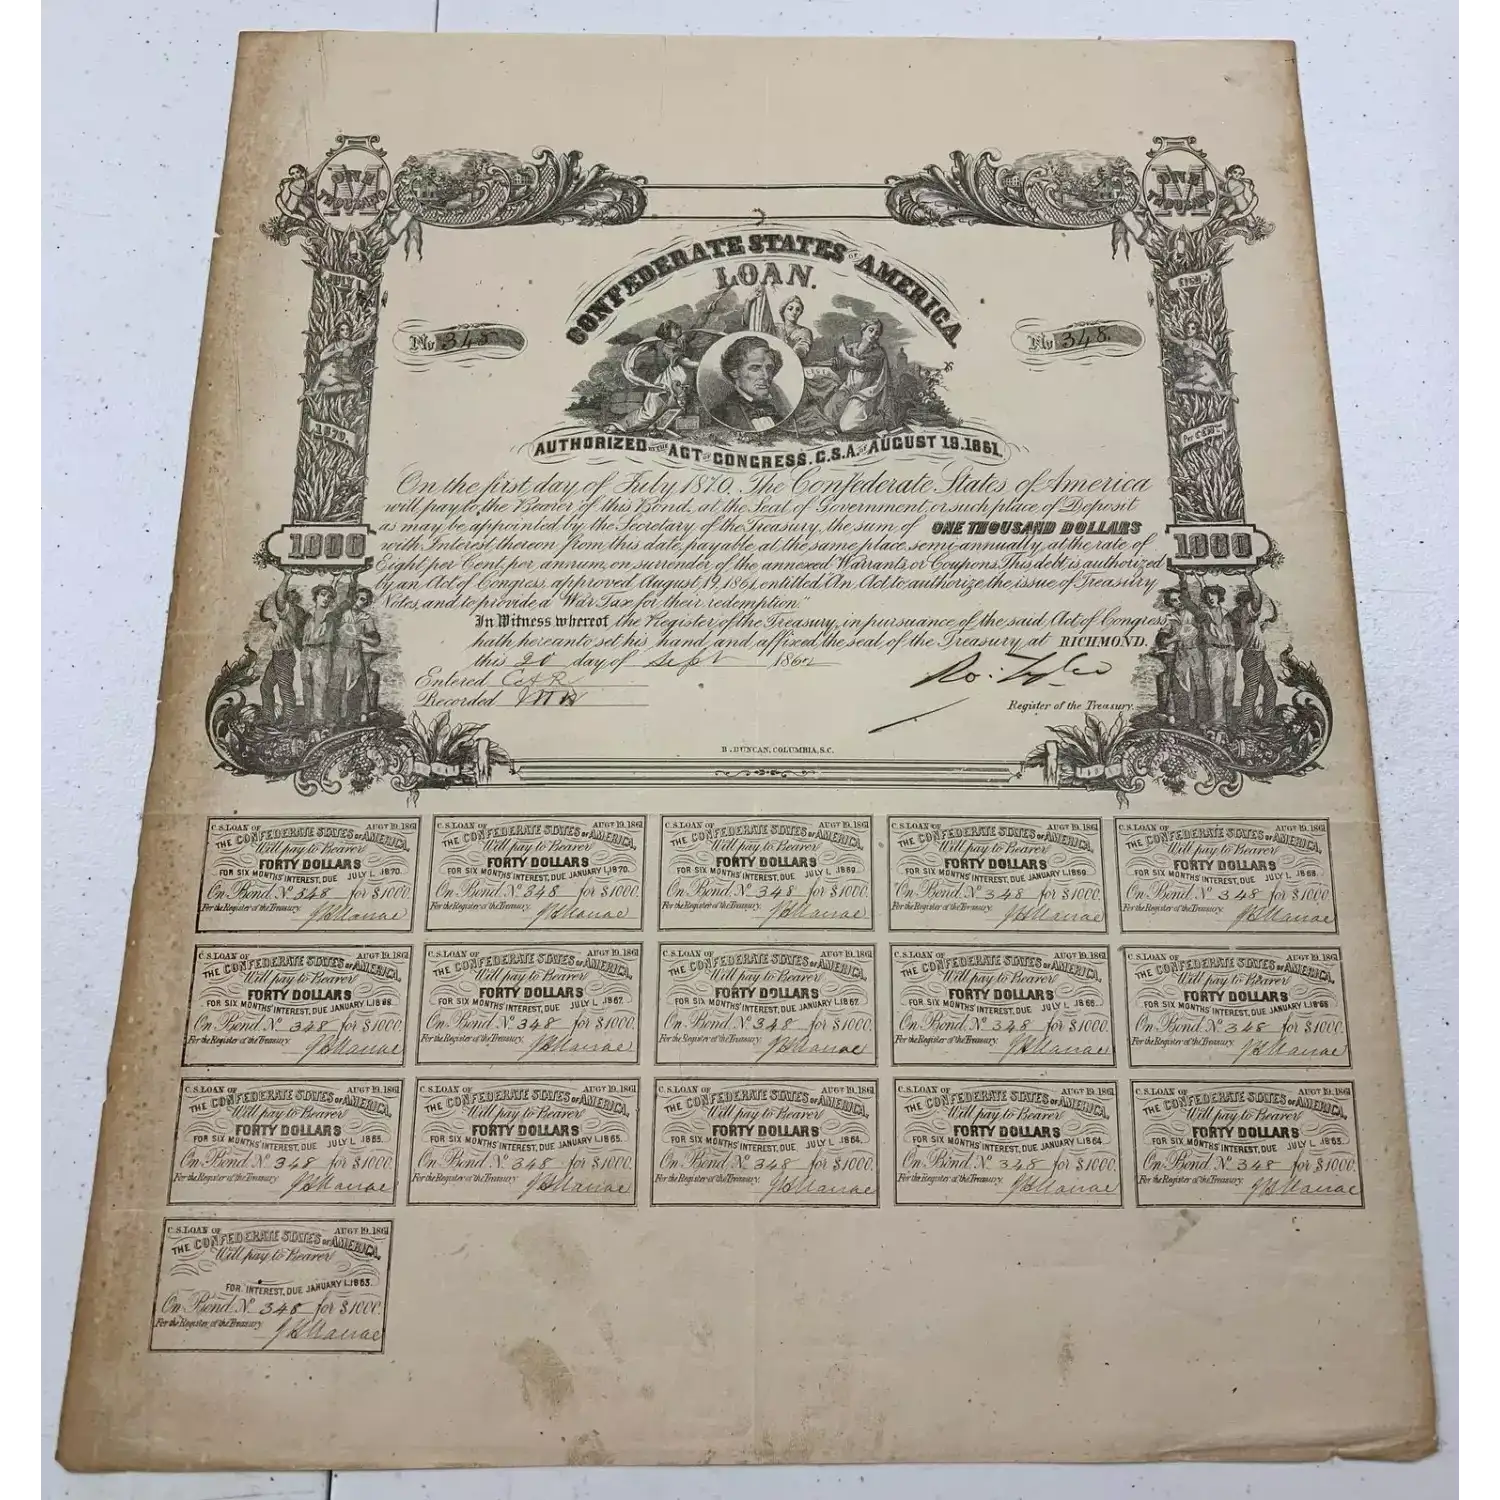 ONE THOUSAND M
ONE THOUSAND M
CONFEDERATE STATES OF AMERICA.
LOAN.
JULY 1
EIGHT
No. 348
No. 348.
1861
1870.
Per Cent
AUTHORIZED BY THE ACT OF CONGRESS. C.S.A. OF AUGUST 19.1861.
On the first day of July 1870. The Confederate States of America
will pay to the Bearer of this Bond, at the Seat of Government, or such place of Deposit
as may be appointed by the Secretary of the Treasury, the sum of ONE THOUSAND DOLLARS
1000
with Interest thereon from this date, payable at the same place semi-annually, at the rate of
1000
Eight per Cent, per annum, on surrender of the annexed Warrants or Coupons. This debt is authorized
by an Act of Congress, approved August, 19, 1861, entitled "An Act, to authorize the issue of Treasury
Notes, and to provide a War Tax for their redemption."
In Witness whereof the Register of the Treasury, in pursuance of the said Act of Congress,
hath hereunto set his hand and affixed the seal of the Treasury at RICHMOND.
this 20 day of Sept 1862
Entered
Recorded
Ro: Tyler
Register of the Treasury.
B. DUNCAN, COLUMBIA, S.C.
C.S. LOAN OF AUGT 19, 1861
THE CONFEDERATE STATES OF AMERICA,
Will pay to Bearer
FORTY DOLLARS
FOR SIX MONTHS' INTEREST, DUE JULY 1, 1870.
On Bond No 348 for $1000.
For the Register of the Treasury.
C.S. LOAN OF AUGT 19, 1861
THE CONFEDERATE STATES OF AMERICA,
Will pay to Bearer
FORTY DOLLARS
FOR SIX MONTHS' INTEREST, DUE JANUARY 1, 1870.
On Bond No 348 for $1000.
For the Register of the Treasury.
C.S. LOAN OF AUGT 19, 1861
THE CONFEDERATE STATES OF AMERICA,
Will pay to Bearer
FORTY DOLLARS
FOR SIX MONTHS' INTEREST, DUE JULY 1, 1869.
On Bond No 348 for $1000.
For the Register of the Treasury.
C.S. LOAN OF AUGT 19, 1861
THE CONFEDERATE STATES OF AMERICA,
Will pay to Bearer
FORTY DOLLARS
FOR SIX MONTHS' INTEREST, DUE JANUARY 1, 1869.
On Bond No 348 for $1000.
For the Register of the Treasury.
C.S. LOAN OF AUGT 19, 1861
THE CONFEDERATE STATES OF AMERICA,
Will pay to Bearer
FORTY DOLLARS
FOR SIX MONTHS' INTEREST, DUE JULY 1, 1868.
On Bond No 348 for $1000.
For the Register of the Treasury.
C.S. LOAN OF AUGT 19, 1861
THE CONFEDERATE STATES OF AMERICA,
Will pay to Bearer
FORTY DOLLARS
FOR SIX MONTHS' INTEREST, DUE JANUARY 1, 1868.
On Bond No 348 for $1000.
For the Register of the Treasury.
C.S. LOAN OF AUGT 19, 1861
THE CONFEDERATE STATES OF AMERICA,
Will pay to Bearer
FORTY DOLLARS
FOR SIX MONTHS' INTEREST, DUE JULY 1, 1867.
On Bond No 348 for $1000.
For the Register of the Treasury.
C.S. LOAN OF AUGT 19, 1861
THE CONFEDERATE STATES OF AMERICA,
Will pay to Bearer
FORTY DOLLARS
FOR SIX MONTHS' INTEREST, DUE JANUARY 1, 1867.
On Bond No 348 for $1000.
For the Register of the Treasury.
C.S. LOAN OF AUGT 19, 1861
THE CONFEDERATE STATES OF AMERICA,
Will pay to Bearer
FORTY DOLLARS
FOR SIX MONTHS' INTEREST, DUE JULY 1, 1866.
On Bond No 348 for $1000.
For the Register of the Treasury.
C.S. LOAN OF AUGT 19, 1861
THE CONFEDERATE STATES OF AMERICA,
Will pay to Bearer
FORTY DOLLARS
FOR SIX MONTHS' INTEREST, DUE JANUARY 1, 1866
On Bond No 348 for $1000.
For the Register of the Treasury.
C.S. LOAN OF AUGT 19, 1861
THE CONFEDERATE STATES OF AMERICA,
Will pay to Bearer
FORTY DOLLARS
FOR SIX MONTHS' INTEREST, DUE JULY 1, 1865.
On Bond No 348 for $1000.
For the Register of the Treasury.
C.S. LOAN OF AUGT 19, 1861
THE CONFEDERATE STATES OF AMERICA,
Will pay to Bearer
FORTY DOLLARS
FOR SIX MONTHS' INTEREST, DUE JANUARY 1, 1865.
On Bond No 348 for $1000.
For the Register of the Treasury.
C.S. LOAN OF AUGT 19, 1861
THE CONFEDERATE STATES OF AMERICA,
Will pay to Bearer
FORTY DOLLARS
FOR SIX MONTHS' INTEREST, DUE JULY 1, 1864.
On Bond No 348 for $1000.
For the Register of the Treasury.
C.S. LOAN OF AUGT 19, 1861
THE CONFEDERATE STATES OF AMERICA,
Will pay to Bearer
FORTY DOLLARS
FOR SIX MONTHS' INTEREST, DUE JANUARY 1, 1864
On Bond No 348 for $1000.
For the Register of the Treasury.
C.S. LOAN OF AUGT 19, 1861
THE CONFEDERATE STATES OF AMERICA,
Will pay to Bearer
FORTY DOLLARS
FOR SIX MONTHS' INTEREST, DUE JULY 1, 1863.
On Bond No 348 for $1000.
For the Register of the Treasury.
C.S. LOAN OF AUGT 19, 1861
THE CONFEDERATE STATES OF AMERICA,
Will pay to Bearer
FOR INTEREST, DUE JANUARY 1, 1863.
On Bond No 348 for $1000.
For the Register of the Treasury.